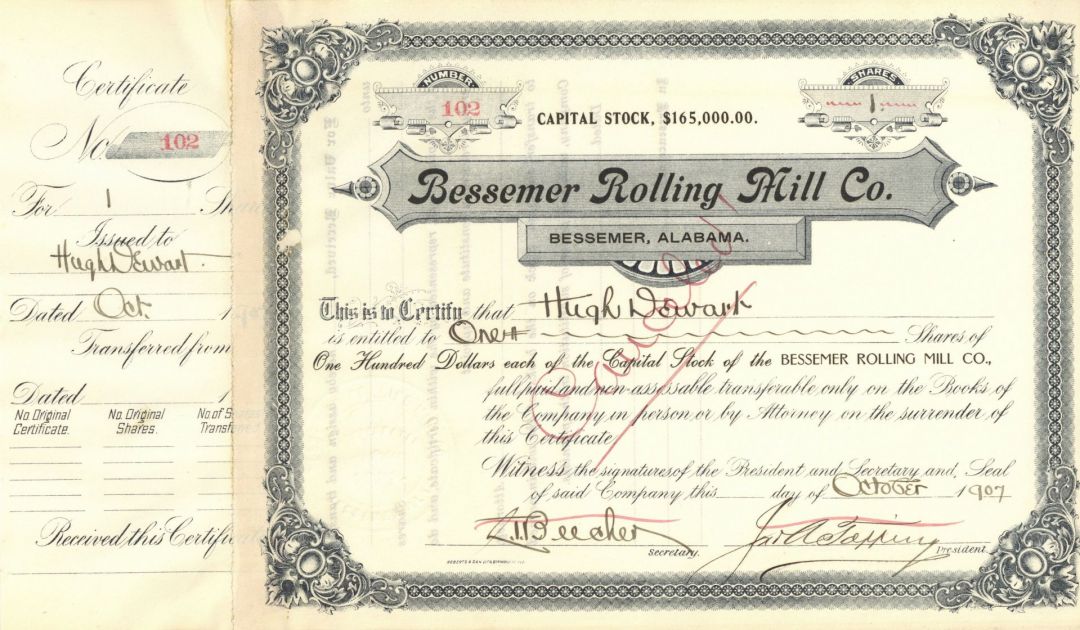 Certificate
No. 102
For 1 Sha
Issued to
Hugh Dewart.
Dated Oct. 1
Transferred from
Dated 1
No. Original Certificate.
No. Original Shares.
No of Shares Transfered
Received this Certific
NUMBER
102
CAPITAL STOCK, $165,000.00.
SHARES
1
Bessemer Rolling Mill Co.
BESSEMER, ALABAMA.
This is to Certify that Hugh Dewart
is entitled to One Shares of
One Hundred Dollars each of the Capital Stock of the BESSEMER ROLLING MILL CO.,
full paid and non-assessable transferable only on the Books of
the Company in person or by Attorney on the surrender of
this Certificate
Witness the signatures of the President and Secretary and Seal
of said Company this day of October 1907
Cancelled
L.T. Beecher
Secretary.
President.
ROBERTS & SON